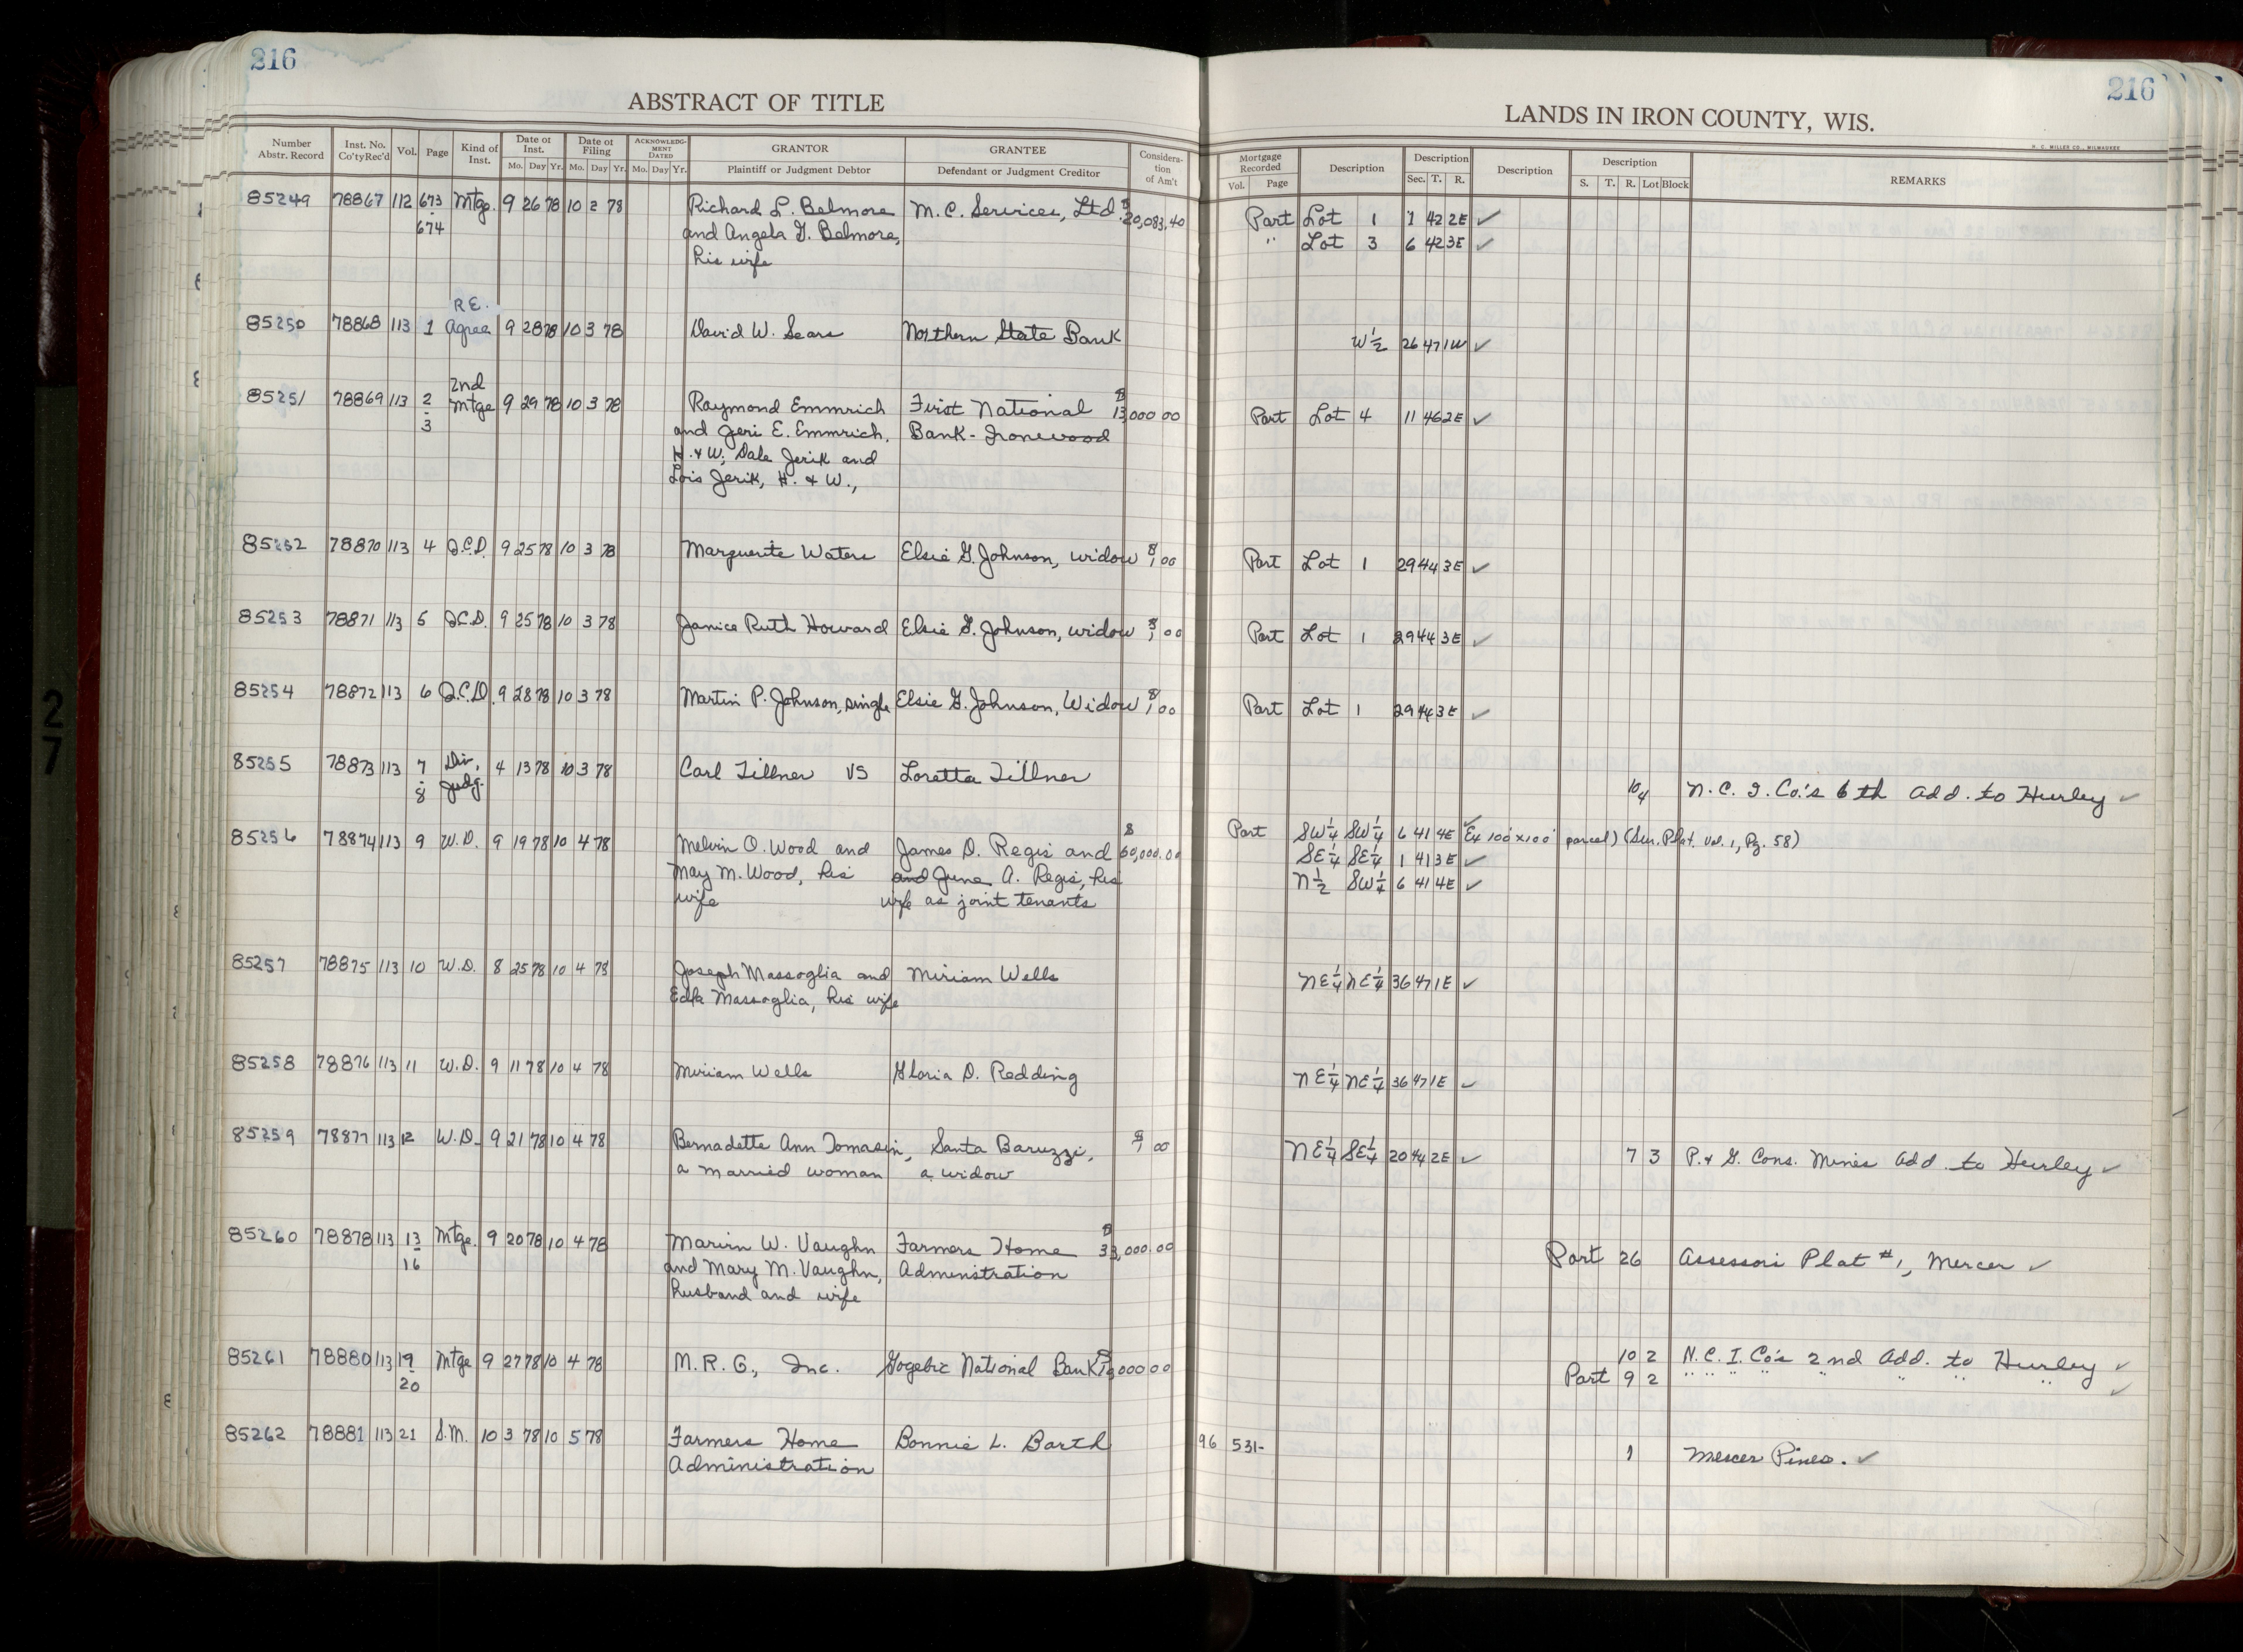 216
ABSTRACT OF TITLE
Number Abstr. Record Inst. No. Co'ty Rec'd Vol. Page Kind of Inst. Date of Inst. Mo. Day Yr. Date of Filing Mo. Day Yr. ACKNOWLEDGMENT DATED Mo. Day Yr. GRANTOR Plaintiff or Judgment Debtor GRANTEE Defendant or Judgment Creditor Consideration of Am't
85249 78867 112 673 Mtge. 9 26 78 10 2 78 Richard L. Belmore M.C. Services, Ltd. $20,083.40
- 674 and Angela G. Belmore,
his wife
R.E.
85250 78868 113 1 Agree 9 28 78 10 3 78 David W. Sears Northern State Bank
2nd
85251 78869 113 2 Mtge 9 29 78 10 3 78 Raymond Emmrich First National $13,000.00
- 3 and Geri E. Emmrich, Bank - Ironwood
H. & W; Dale Jerik and
Lois Jerik, H. & W.,
85252 78870 113 4 Q.C.D. 9 25 78 10 3 78 Marguerite Waters Elsie G. Johnson, widow $1.00
85253 78871 113 5 Q.C.D. 9 25 78 10 3 78 Janice Ruth Howard Elsie G. Johnson, widow $1.00
85254 78872 113 6 Q.C.D. 9 28 78 10 3 78 Martin P. Johnson, single Elsie G. Johnson, Widow $1.00
85255 78873 113 7 Div. 4 13 78 10 3 78 Carl Tillner VS Loretta Tillner
- 8 Judg.
85256 78874 113 9 W.D. 9 19 78 10 4 78 Melvin O. Wood and James D. Regis and $60,000.00
May M. Wood, his and June A. Regis, his
wife wife as joint tenants
85257 78875 113 10 W.D. 8 25 78 10 4 78 Joseph Massoglia and Miriam Wells
Edla Massoglia, his wife
85258 78876 113 11 W.D. 9 11 78 10 4 78 Miriam Wells Gloria D. Redding
85259 78877 113 12 W.D. 9 21 78 10 4 78 Bernadette Ann Tomasin, Santa Baruzzi, $1.00
a married woman a widow
85260 78878 113 13 Mtge. 9 20 78 10 4 78 Marvin W. Vaughn Farmers Home $33,000.00
- 16 and Mary M. Vaughn, Administration
husband and wife
85261 78880 113 19 Mtge 9 27 78 10 4 78 M.R.G., Inc. Gogebic National Bank
- 20
85262 78881 113 21 S.M. 10 3 78 10 5 78 Farmers Home Bonnie L. Barth
Administration
216
LANDS IN IRON COUNTY, WIS.
H. C. MILLER CO., MILWAUKEE
Mortgage Recorded Vol. Page Description Description Sec. T. R. Description Description S. T. R. Lot Block REMARKS
Part Lot 1 7 42 2E ✓
" Lot 3 6 42 3E ✓
W 1/2 26 47 1W ✓
Part Lot 4 11 46 2E ✓
Part Lot 1 29 44 3E ✓
Part Lot 1 29 44 3E ✓
Part Lot 1 29 44 3E ✓
10 4 N.C.I. Co.'s 6th Add. to Hurley ✓
Part SW 1/4 SW 1/4 6 41 4E ✓ Ex 100'x100' parcel) (Sur. Plat. Vol. 1, Pg. 58)
SE 1/4 SE 1/4 1 41 3E ✓
N 1/2 SW 1/4 6 41 4E ✓
NE 1/4 NE 1/4 36 47 1E ✓
NE 1/4 NE 1/4 36 47 1E ✓
NE 1/4 SE 1/4 20 44 2E ✓ 7 3 P. & G. Cons. Mines Add. to Hurley ✓
Part 26 Assessors Plat #1, Mercer ✓
10 2 N.C.I. Co's 2nd Add. to Hurley ✓
Part 9 2 " " " " " " " " ✓
96 531- 1 Mercer Pines. ✓
27